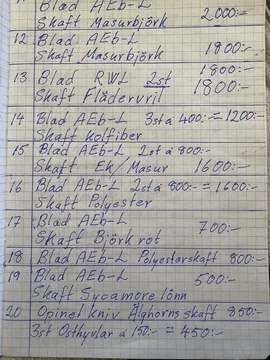 11 Blad AEb-L
Skaft Masurbjörk 2000:-
12 Blad AEb-L
Skaft Masurbjörk 1900:-
13 Blad RWL 2st 1800:-
Skaft Flädervril 1800:-
14 Blad AEb-L 3st á 400:- = 1200:-
Skaft Kolfiber
15 Blad AEb-L 2st á 800:-
Skaft Ek/Masur 1600:-
16 Blad AEb-L 2st á 800:- = 1600:-
Skaft Polyester
17 Blad AEb-L 700:-
Skaft Björkrot
18 Blad AEb-L Polyesterskaft 800:-
19 Blad AEb-L 500:-
Skaft Sycamorelönn
20 Opinel kniv Älghornsskaft 850:-
3st Osthyvlar á 150:- = 450:-